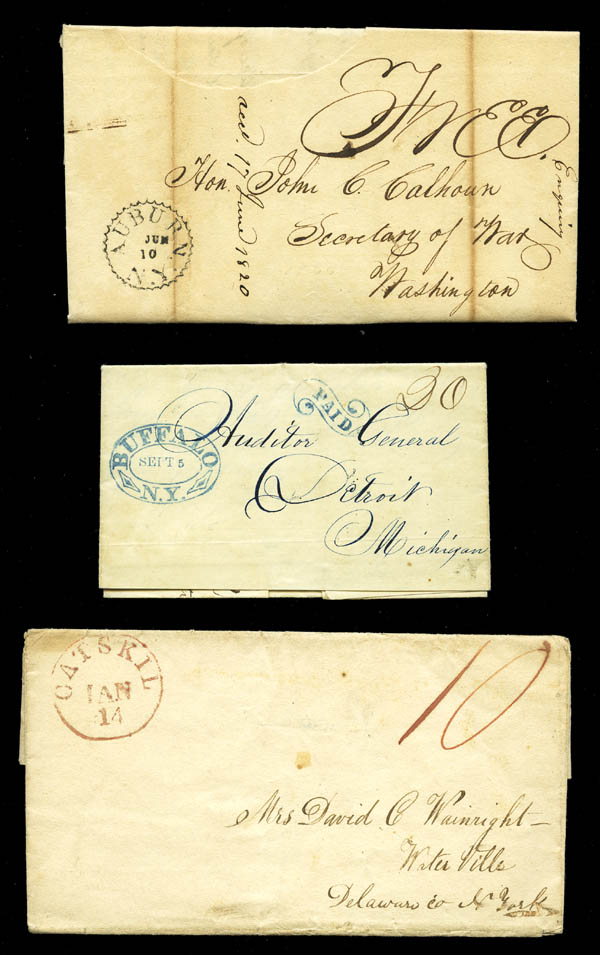 FREE.
Hon. John C. Calhoun
Secretary of War
Washington
Enquiry
AUBURN
JUN
10
N.Y.
PAID
30
BUFFALO
SEPT 5
N.Y.
Auditor General
Detroit
Michigan
CATSKIL
JAN
14
10
Mrs David C Wainright
Water Ville
Delaware co N York
17 June 1820